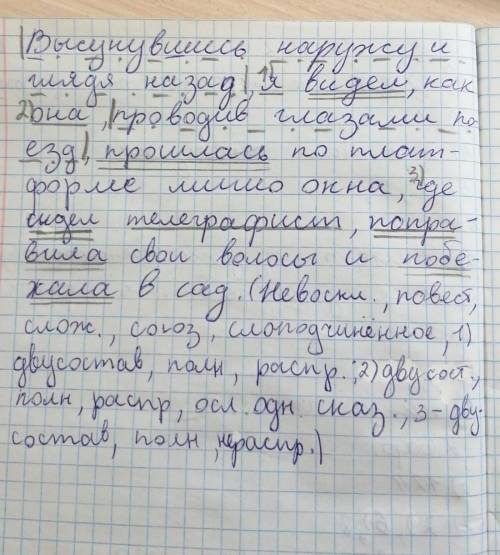 |Высунувшись наружу и
глядя назад|, 1)я видел, как
2)она, |проводив глазами по-
езд|, прошлась по плат-
форме мимо окна, 3)где
сидел телеграфист, попра-
вила свои волосы и побе-
жала в сад. (Невоскл., повест,
слож., союз, слоподчинённое, 1)
двусостав, полн, распр.; 2) двусост.,
полн, распр, осл. одн. сказ., 3-дву-
состав, полн, нераспр.)